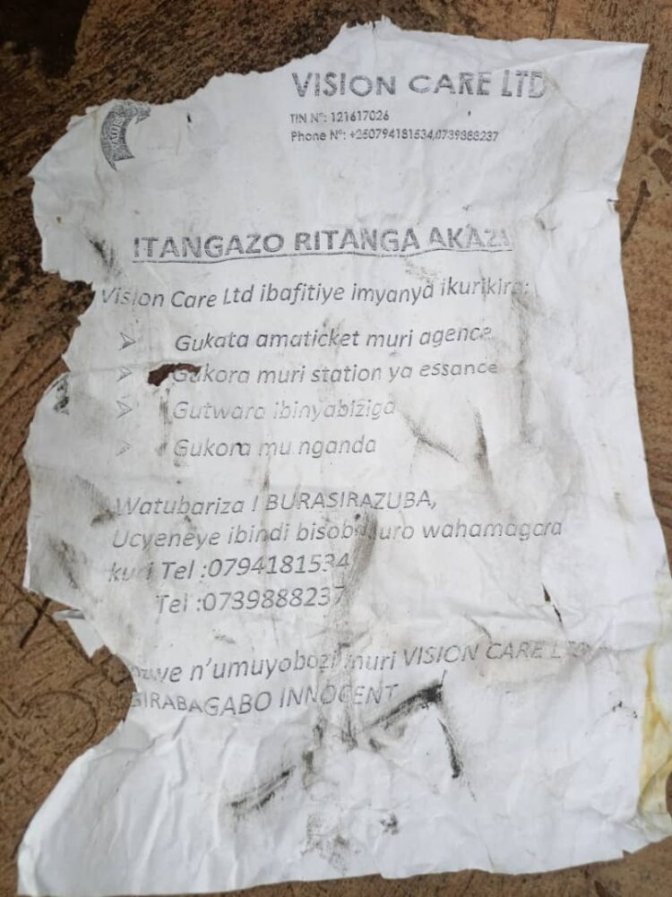 VISION CARE LTD
TIN N°: 121617026
Phone N°: +250794181534,0739888237
ITANGAZO RITANGA AKAZI
Vision Care Ltd ibafitiye imyanya ikurikira:
Gukata amaticket muri agence
Gukora muri station ya essance
Gutwara ibinyabiziga
Gukora mu nganda
Watubariza I BURASIRAZUBA,
Ucyeneye ibindi wahamagara
kuri Tel :0794181534
Tel :0739888237
n'umuyobozi muri VISION CARE LTD
INNOCENT